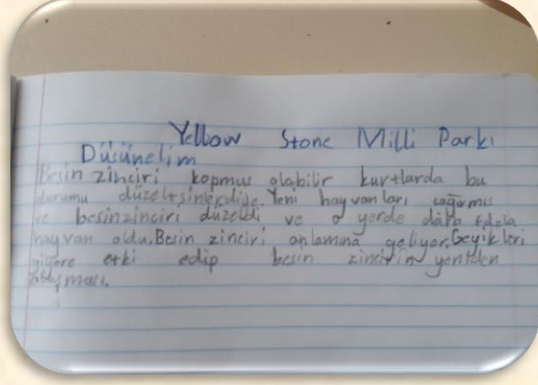 Yellow Stone Milli Parkı
Düşünelim
Besin zinciri kopmuş olabilir kurtlarda bu
durumu düzeltsinler diye. Yeni hayvanları çağırmış
ve besinzinciri düzeldi ve o yerde daha fazla
hayvan oldu. Besin zinciri anlamına geliyor. Geyikleri
etki edip besin zincirin yeniden